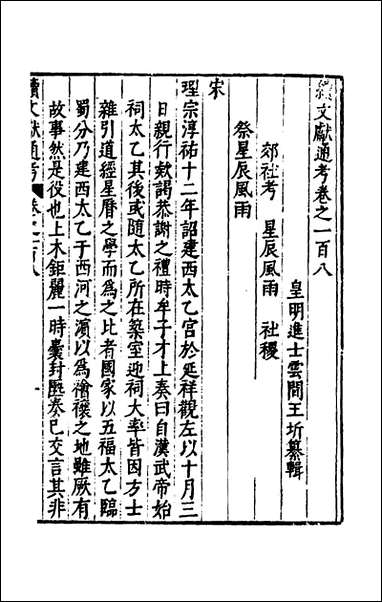 續文獻通考卷之一百八
皇明進士雲間王圻纂輯
郊社考　星辰風雨　社稷
祭星辰風雨
宋
理宗淳祐十二年詔建西太乙宮於延祥觀左以十月三
日親行欵謁恭謝之禮時牟子才上奏曰自漢武帝始
祠太乙其後或隨太乙所在築室迎祠大率皆因方士
雜引道經星曆之學而爲之比者國家以五福太乙臨
蜀分乃建西太乙于西河之濵以爲禬禳之地雖厥有
故事然是役也土木鉅麗一時囊封匭奏已交言其非
續文獻通考　卷之一百八　一